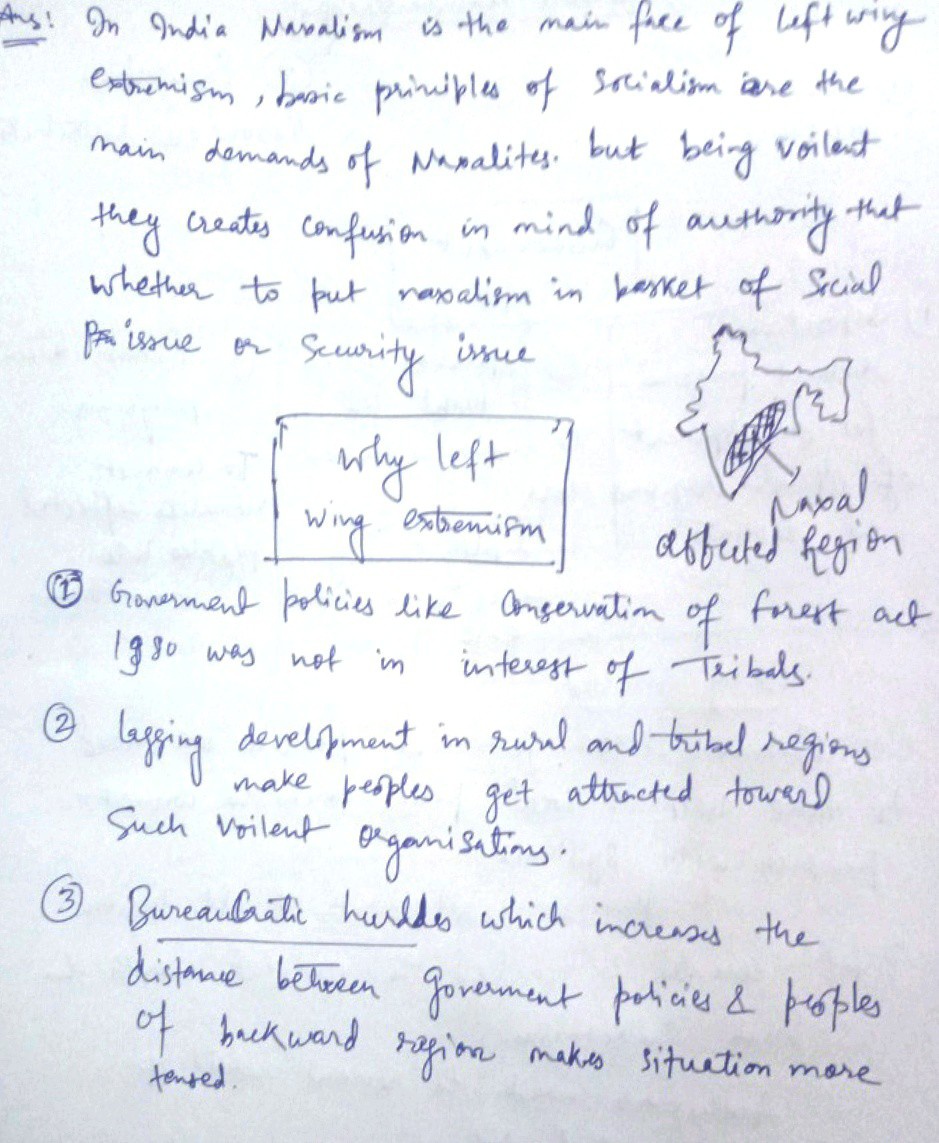 Ans: In India Naxalism is the main face of left wing
extremism, basic priniples of Socialism are the
main demands of Naxalites. but being voilent
they creates confusion in mind of authority that
whether to put naxalism in basket of Social
issue or Security issue
why left
wing extremism
Naxal
affected Region
① Goverment policies like Conservation of forest act
1980 was not in interest of Tribals.
② lagging development in rural and tribel regions
make peoples get attracted toward
Such Voilent organisations.
③ Bureaucratic hurddes which increases the
distance between goverment policies & peoples
of backward region makes situation more
tensed.